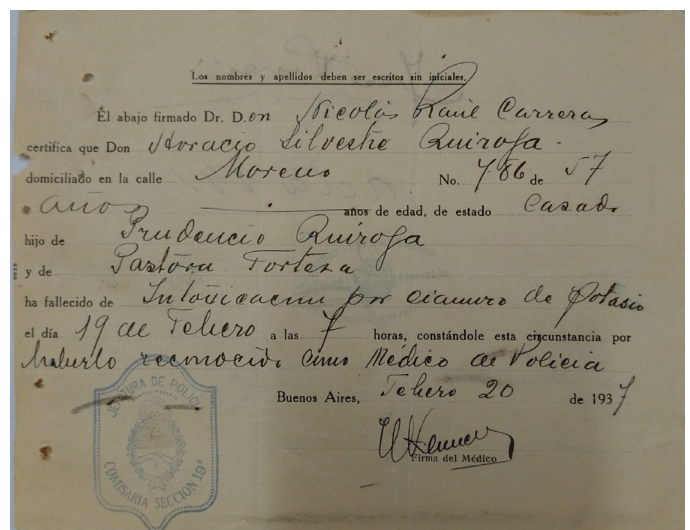 Los nombres y apellidos deben ser escritos sin iniciales.
El abajo firmado Dr. Don Nicolás Raúl Carreras
certifica que Don Horacio Silvestre Quiroga
domiciliado en la calle Moreno No. 786 de 57
años años de edad, de estado Casado
hijo de Prudencio Quiroga
y de Pastora Forteza
ha fallecido de Intoxicación por cianuro de potasio
el día 19 de Febrero a las 7 horas, constándole esta circunstancia por
haberlo reconocido como Médico de Policía
Buenos Aires, Febrero 20 de 1937
Firma del Médico
JEFATURA DE POLICIA
COMISARIA SECCION 19ª